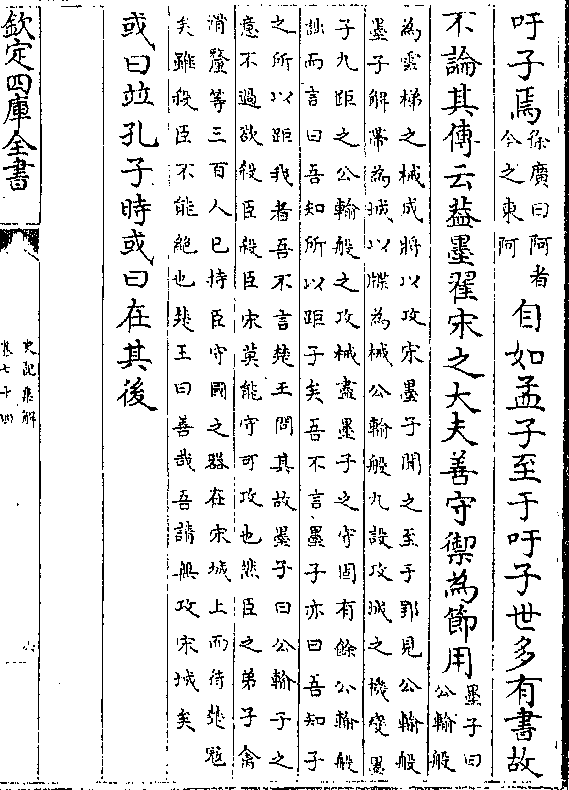 吁子焉徐廣曰阿者今之東阿自如孟子至于吁子世多有書故
不論其傳云葢墨翟宋之大夫善守禦為節用墨子曰公輸般
為雲梯之械成將以攻宋墨子聞之至于郢見公輸般
墨子解帶為城以牒為械公輸般九設攻城之機變墨
子九距之公輸般之攻械盡墨子之守固有餘公輸般
詘而言曰吾知所以距子矣吾不言墨子亦曰吾知子
之所以距我者吾不言楚王問其故墨子曰公輸子之
意不過欲殺臣殺臣宋莫能守可攻也然臣之弟子禽
滑釐等三百人已持臣守國之器在宋城上而待楚冦
矣雖殺臣不能絶也楚王曰善哉吾請無攻宋城矣
或曰竝孔子時或曰在其後
欽定四庫全書
史記集解
卷七十四